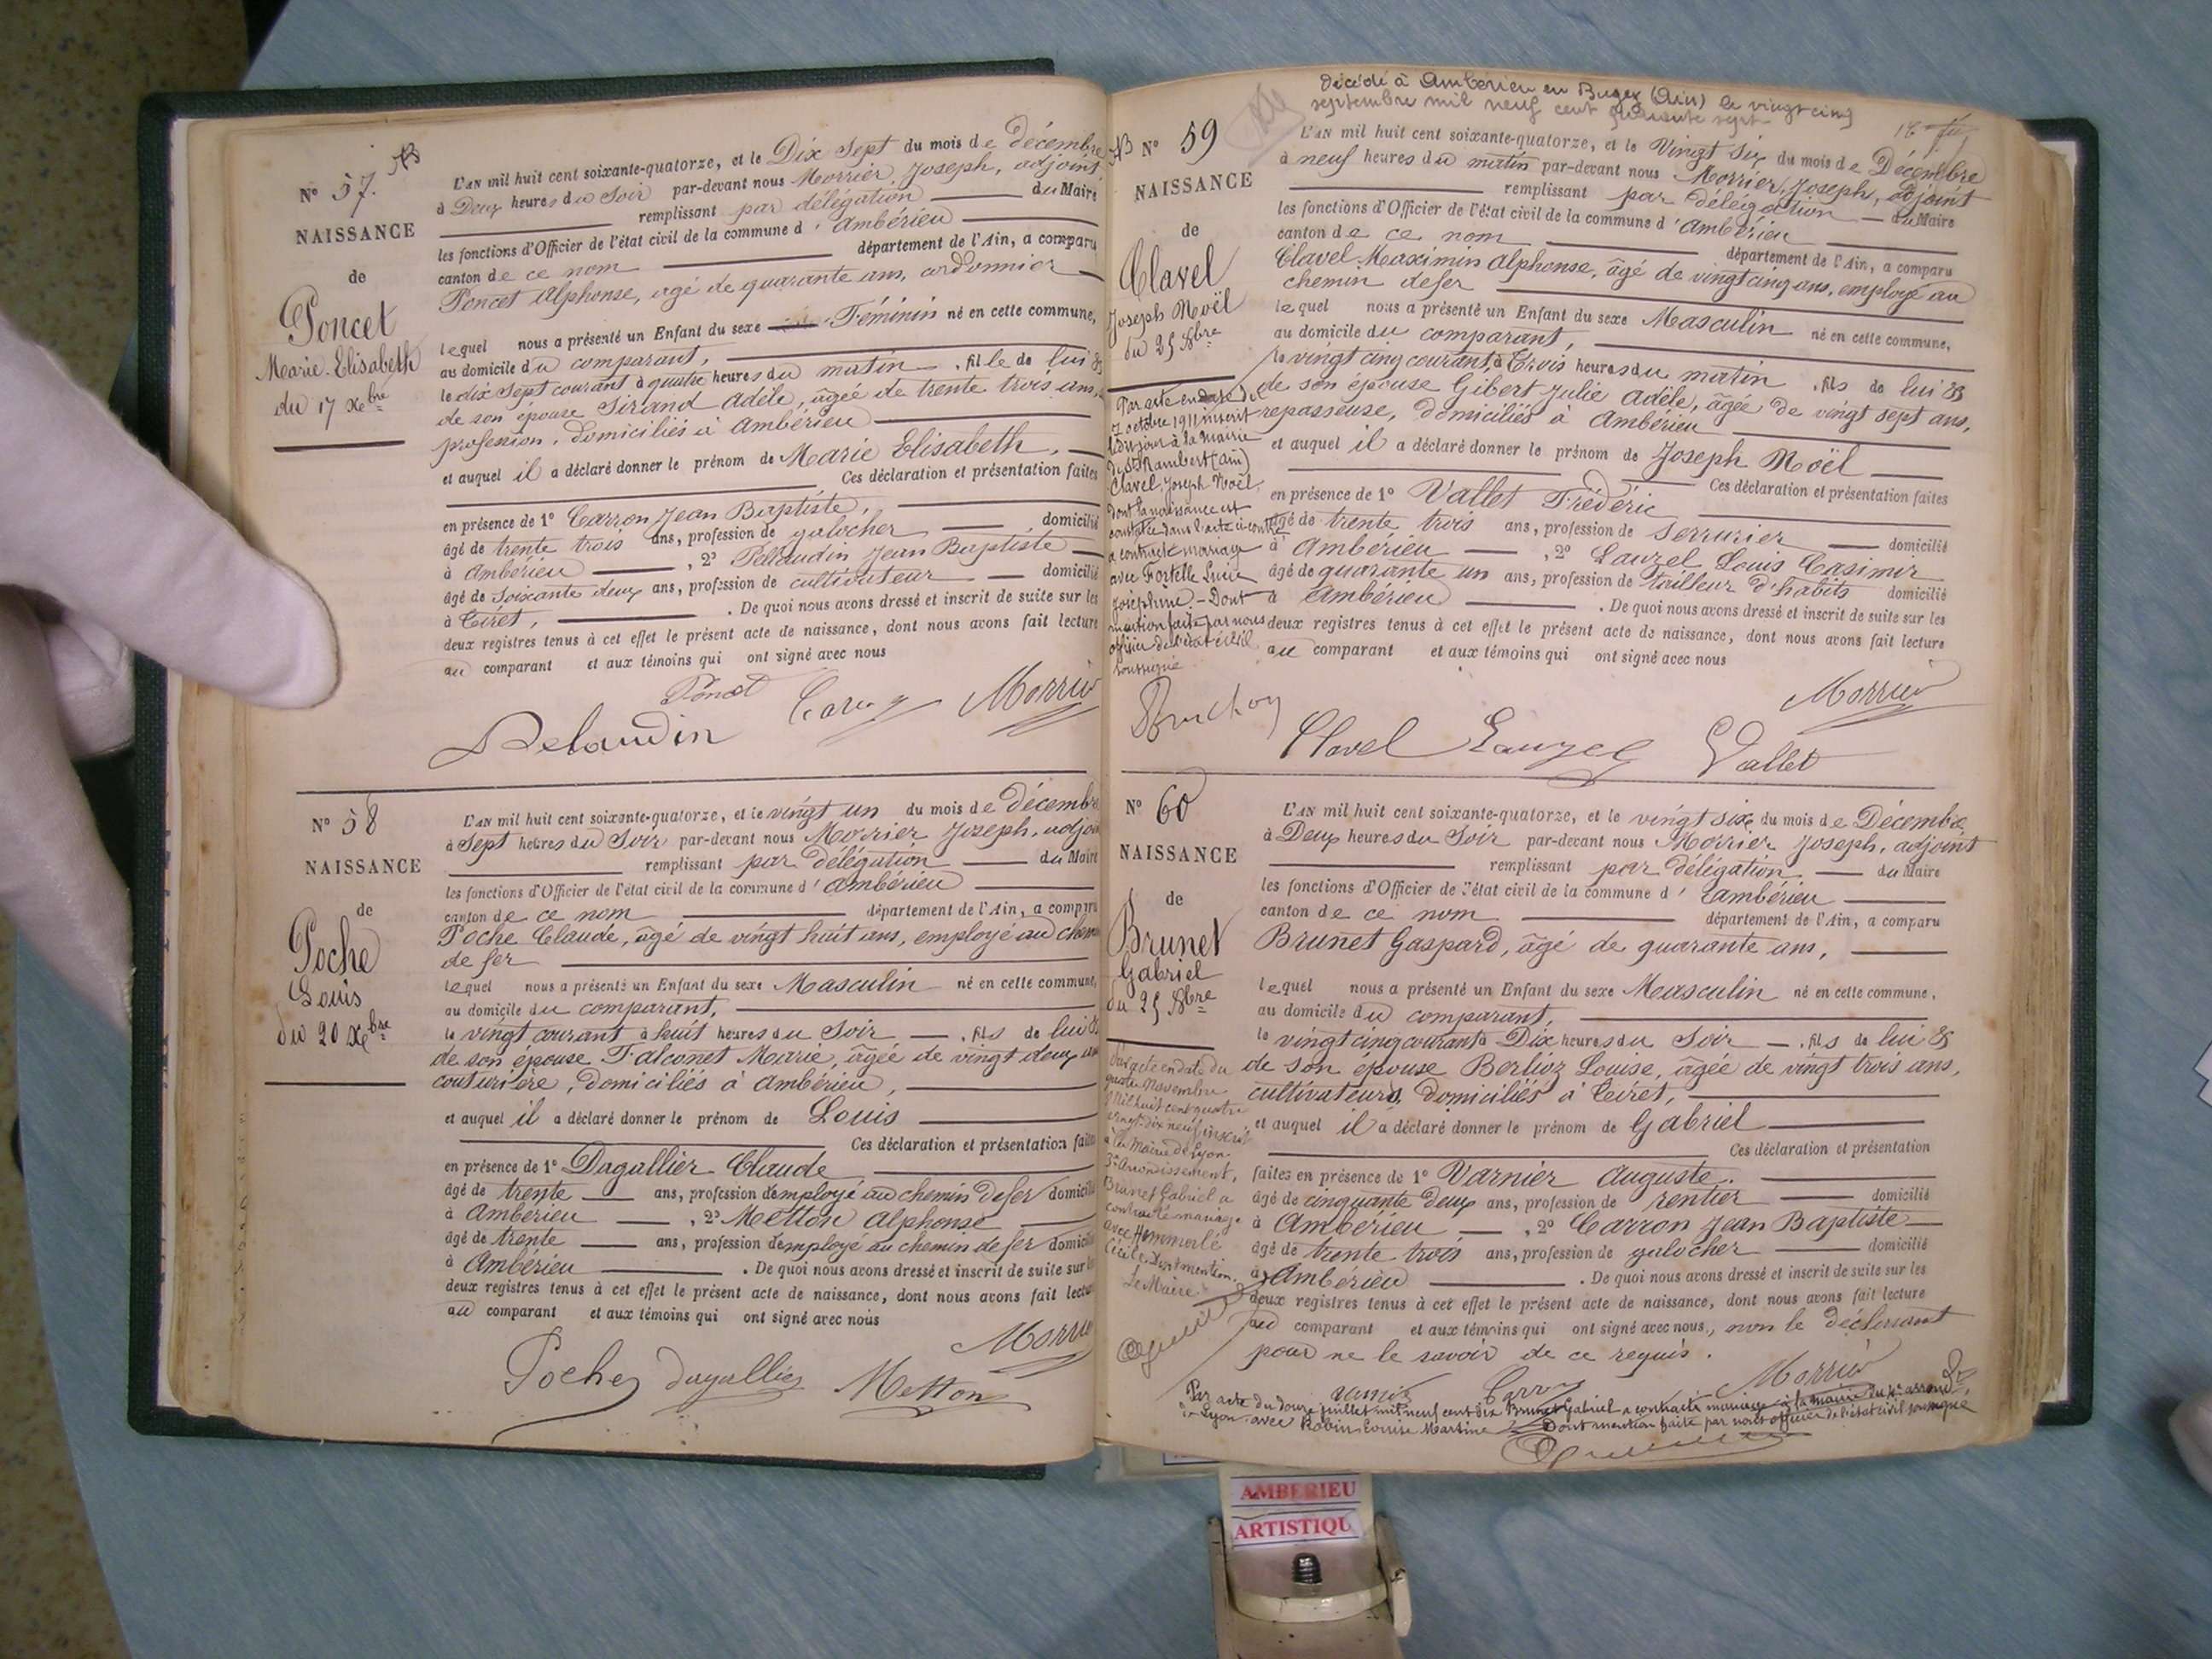 N° 57.
NAISSANCE
de
Poncet
Marie-Elisabeth
du 17 Xbre
L'AN mil huit cent soixante-quatorze, et le Dix Sept du mois de décembre
à Deux heures du Soir par-devant nous Morrier, Joseph, adjoint
remplissant par délégation du Maire
les fonctions d'Officier de l'état civil de la commune d'Ambérieu
canton de ce nom département de l'Ain, a comparu
Poncet Alphonse, agé de quarante ans, cordonnier
lequel nous a présenté un Enfant du sexe Féminin né en cette commune,
au domicile du comparant,
le dix Sept courant à quatre heures du matin, fille de lui &
de son épouse Sirand Adèle, âgée de trente trois ans,
profession, domiciliés à Ambérieu
et auquel il a déclaré donner le prénom de Marie Elisabeth,
Ces déclaration et présentation faites
en présence de 1° Carron Jean Baptiste,
âgé de trente trois ans, profession de galocher domicilié
à Ambérieu, 2° Pellaudin Jean Baptiste
âgé de Soixante deux ans, profession de cultivateur domicilié
à Tiret, . De quoi nous avons dressé et inscrit de suite sur les
deux registres tenus à cet effet le présent acte de naissance, dont nous avons fait lecture
au comparant et aux témoins qui ont signé avec nous
Poncet Morrier
Pelaudin
N° 58
NAISSANCE
de
Poche
Louis
du 20 Xbre
L'AN mil huit cent soixante-quatorze, et le vingt un du mois de décembre
à Sept heures du Soir par-devant nous Morrier Joseph, adjoi
remplissant par délégation du Maire
les fonctions d'Officier de l'état civil de la commune d'Ambérieu
canton de ce nom département de l'Ain, a comparu
Poche Claude, âgé de vingt huit ans, employé au chemin
de fer
lequel nous a présenté un Enfant du sexe Masculin né en cette commune,
au domicile du comparant,
le vingt courant à huit heures du Soir, fils de lui &
de son épouse Falconet Marie, âgée de vingt deux ans
couturière, domiciliés à Ambérieu,
et auquel il a déclaré donner le prénom de Louis
Ces déclaration et présentation faites
en présence de 1° Dagallier Claude
âgé de trente ans, profession d'employé au chemin de fer domicilié
à Ambérieu, 2° Metton Alphonse
âgé de trente ans, profession d'employé au chemin de fer domicilié
à Ambérieu . De quoi nous avons dressé et inscrit de suite sur
deux registres tenus à cet effet le présent acte de naissance, dont nous avons fait lecture
au comparant et aux témoins qui ont signé avec nous
Morrier
Poche Dagallier Metton
Décédé à Ambérieu en Bugey (Ain) le vingt cinq
septembre mil neuf cent sept
N° 59
NAISSANCE
de
Clavel
Joseph Noël
du 25 Xbre
Par acte en date du
7 octobre 1911 inscrit
le dit jour à la Mairie
de St Rambert (Ain)
Clavel, Joseph Noël,
dont la naissance est
constatée dans l'acte ci-contre
a contracté mariage
avec Fortelle Lucie
Joséphine.- Dont
mention faite par nous
officier de l'état civil
soussigné
L'AN mil huit cent soixante-quatorze, et le Vingt Six du mois de Décembre
à neuf heures du matin par-devant nous Morrier, Joseph, adjoint
remplissant par délégation du Maire
les fonctions d'Officier de l'état civil de la commune d'Ambérieu
canton de ce nom département de l'Ain, a comparu
Clavel Maximin Alphonse, âgé de vingt cinq ans, employé au
chemin de fer
lequel nous a présenté un Enfant du sexe Masculin né en cette commune,
au domicile du comparant,
le vingt cinq courant, à trois heures du matin, fils de lui &
de son épouse Gibert Julie Adèle, âgée de vingt sept ans,
repasseuse, domiciliés à Ambérieu
et auquel il a déclaré donner le prénom de Joseph Noël
Ces déclaration et présentation faites
en présence de 1° Vallet Frédéric
âgé de trente trois ans, profession de Serrurier domicilié
à Ambérieu, 2° Lauzel Louis Casimir
âgé de quarante un ans, profession de tailleur d'habits domicilié
à Ambérieu . De quoi nous avons dressé et inscrit de suite sur les
deux registres tenus à cet effet le présent acte de naissance, dont nous avons fait lecture
au comparant et aux témoins qui ont signé avec nous
Morrier
Clavel Lauzel Vallet
N° 60
NAISSANCE
de
Brunet
Gabriel
du 25 Xbre
Par acte en date du
quatre Novembre
Mil huit cent quatre
vingt-dix neuf inscrit
à la Mairie de Lyon
3e Arrondissement,
Brunet Gabriel a
contracté mariage
avec Hemmerlé
Cécile. Dont mention.
Le Maire
L'AN mil huit cent soixante-quatorze, et le vingt six du mois de Décembre
à Deux heures du Soir par-devant nous Morrier Joseph, adjoint
remplissant par délégation du Maire
les fonctions d'Officier de l'état civil de la commune d'Ambérieu
canton de ce nom département de l'Ain, a comparu
Brunet Gaspard, âgé de quarante ans,
lequel nous a présenté un Enfant du sexe Masculin né en cette commune,
au domicile du comparant,
le vingt cinq courant à Dix heures du Soir, fils de lui &
de son épouse Berlioz Louise, âgée de vingt trois ans,
cultivateurs, domiciliés à Tiret,
et auquel il a déclaré donner le prénom de Gabriel
Ces déclaration et présentation
faites en présence de 1° Varnier Auguste.
âgé de cinquante deux ans, profession de rentier domicilié
à Ambérieu, 2° Carron Jean Baptiste
âgé de trente trois ans, profession de galocher domicilié
à Ambérieu . De quoi nous avons dressé et inscrit de suite sur les
deux registres tenus à cet effet le présent acte de naissance, dont nous avons fait lecture
au comparant et aux témoins qui ont signé avec nous, non le déclarant
pour ne le savoir de ce requis.
Morrier
Par acte du douze juillet mil neuf cent dix Brunet Gabriel a contracté mariage à la mairie du arrond
de Lyon avec Robin Louise Martine Dont mention faite par nous officier de l'état civil soussigné
AMBERIEU
ARTISTIQU